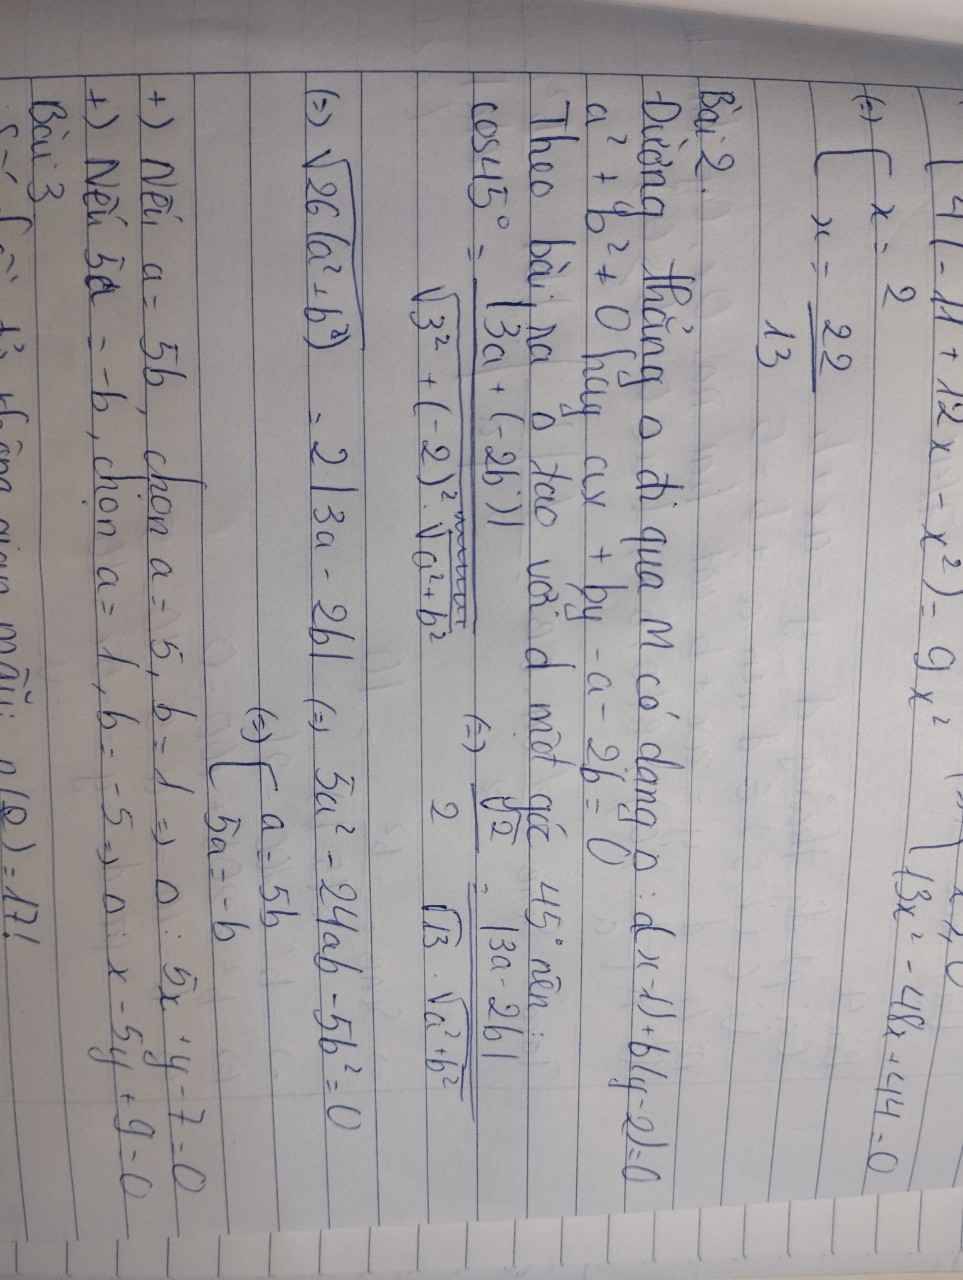 4(-11 + 12x - x²) = 9x²
13x² - 48x + 44 = 0
(=) [ x = 2
x = 22/13
Bài 2.
Đường thẳng Δ đi qua M có dạng Δ: a(x-1) + b(y-2) = 0
a² + b² ≠ 0 hay ax + by - a - 2b = 0
Theo bài ra Δ tạo với d một góc 45° nên:
cos45° = |3a + (-2b)| / √3² + (-2)² . √a² + b² (=) √2 / 2 = |3a - 2b| / √13 . √a² + b²
(=) √26(a² + b²) = 2|3a - 2b| (=) 5a² - 24ab - 5b² = 0
(=) [ a = 5b
5a = -b
+) Nếu a = 5b, chọn a = 5, b = 1 => Δ: 5x + y - 7 = 0
+) Nếu 5a = -b, chọn a = 1, b = -5 => Δ: x - 5y + 9 = 0
Bài 3
không gian mẫu: n(Ω) = 17!